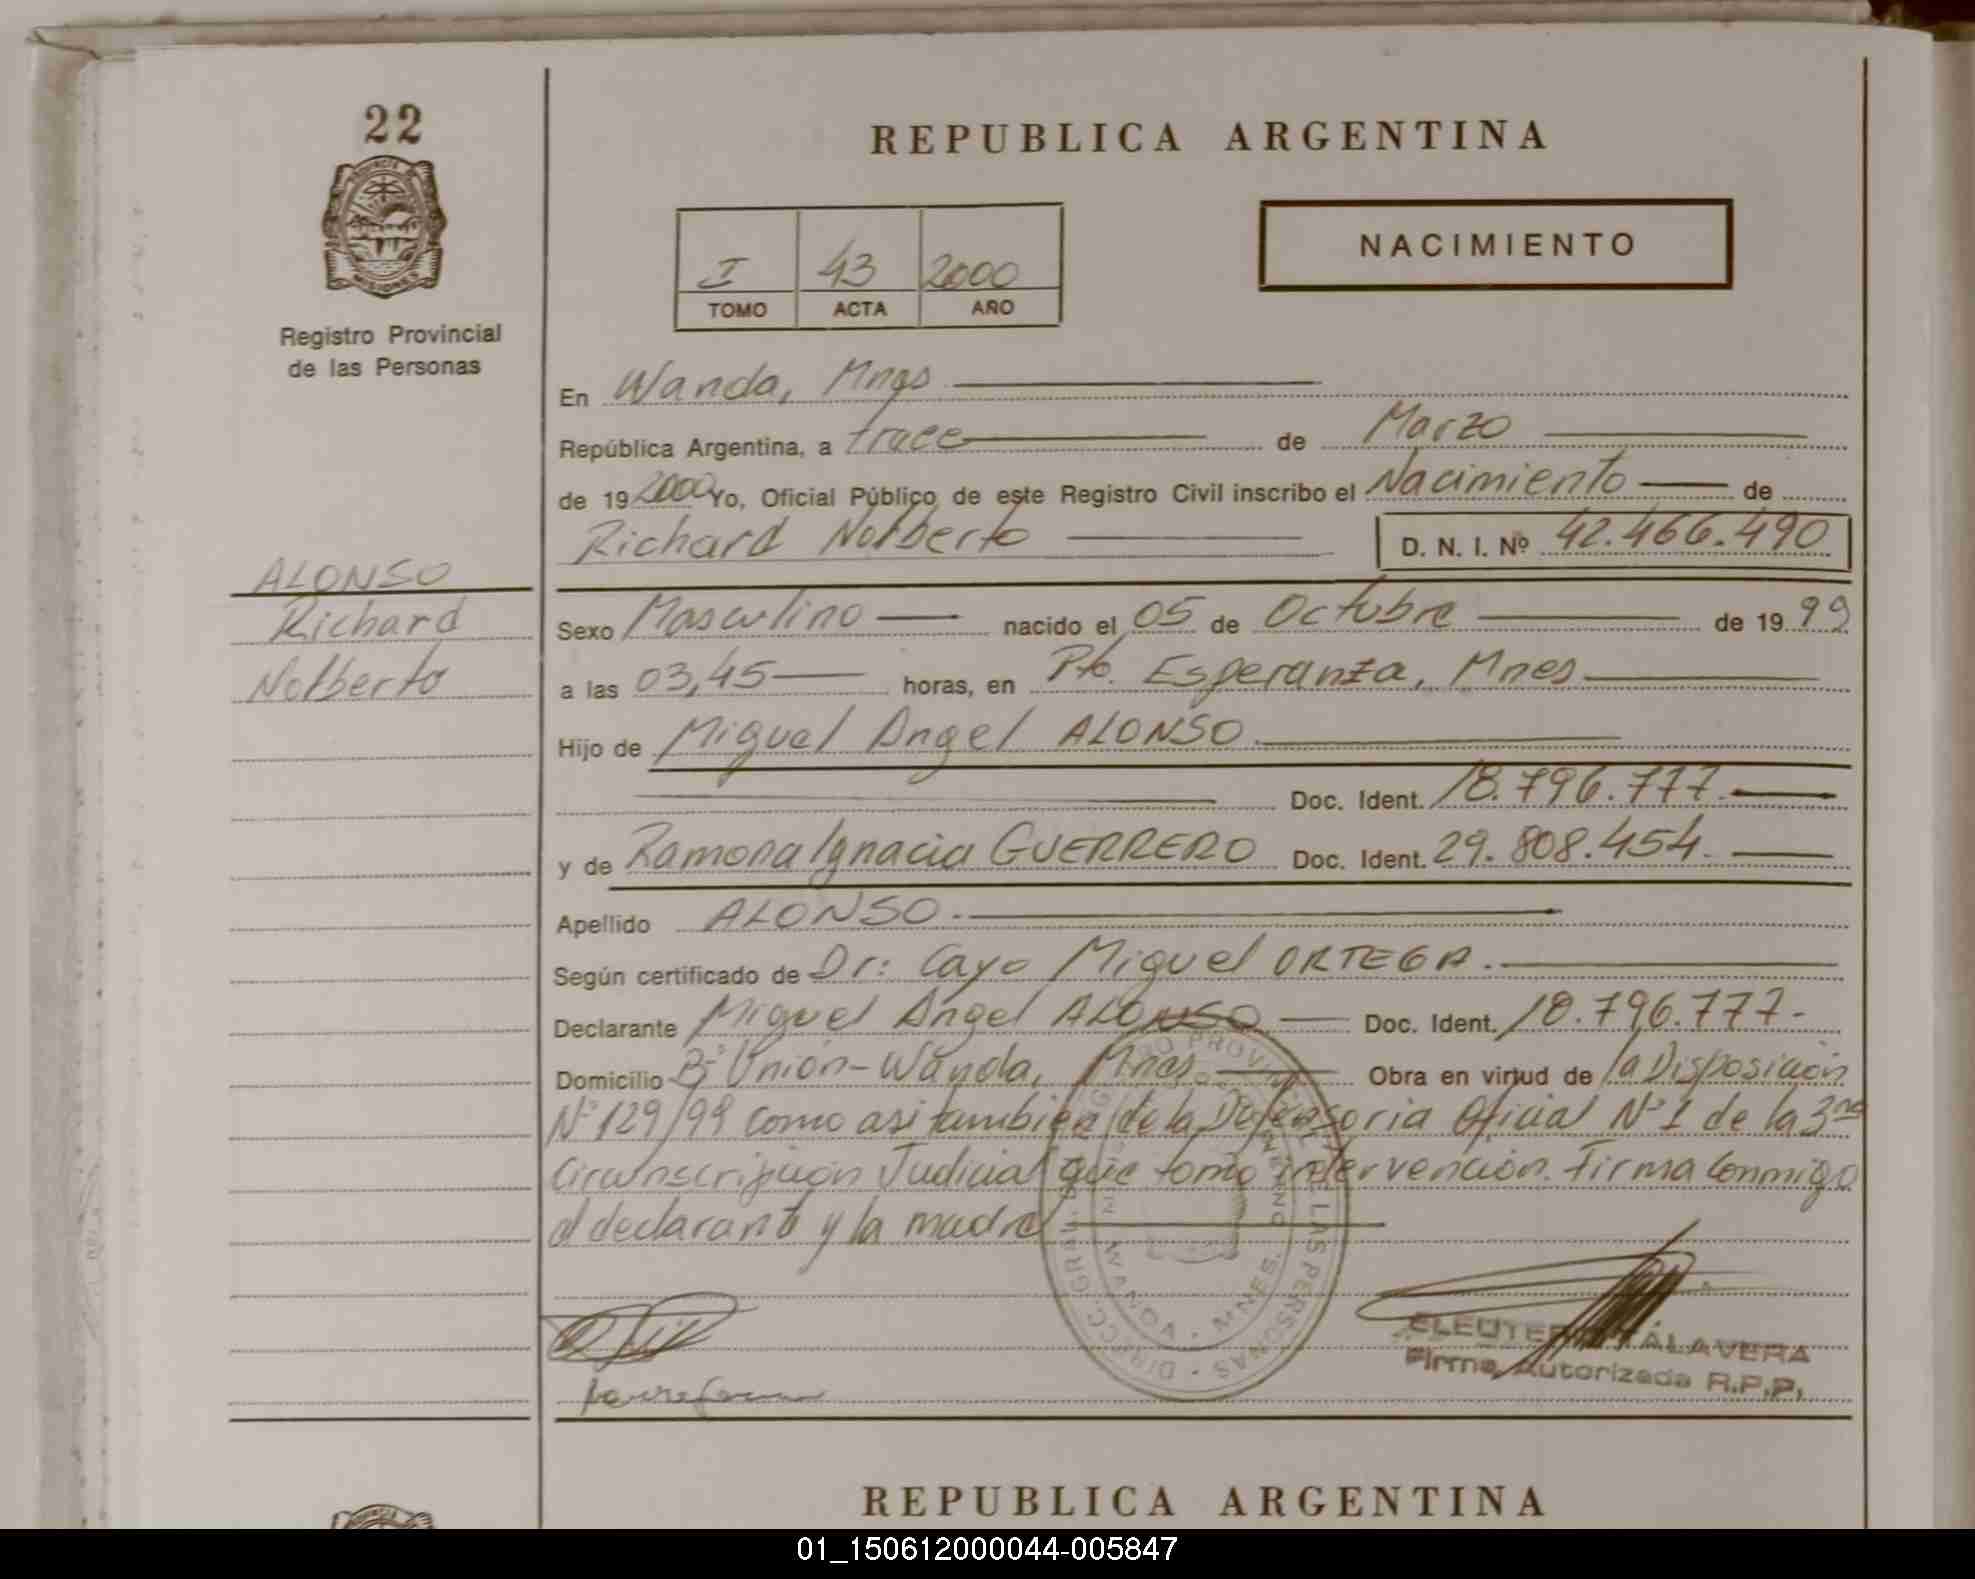 22
REPUBLICA ARGENTINA
NACIMIENTO
I 43 2000
TOMO ACTA AÑO
Registro Provincial
de las Personas
En Wanda, Mnes
República Argentina, a trece de Marzo
de 19 2000 Yo, Oficial Público de este Registro Civil inscribo el Nacimiento de
Richard Norberto D. N. I. Nº 42.466.490
ALONSO
Richard
Norberto
Sexo Masculino nacido el 05 de Octubre de 19 99
a las 03,45 horas, en Pto. Esperanza, Mnes
Hijo de Miguel Angel ALONSO
Doc. Ident. 18.796.777.
y de Ramona Ignacia GUERRERO Doc. Ident. 29.808.454.
Apellido ALONSO.
Según certificado de Dr: Cayo Miguel ORTEGA.
Declarante Miguel Angel ALONSO Doc. Ident. 18.796.777-
Domicilio Bº Unión-Wanda, Mnes Obra en virtud de la Disposición
Nº 129/99 como asi tambien de la Defensoria Oficial Nº 1 de la 3ra
Circunscripción Judicial que tomo intervención. Firma conmigo
el declarante y la madre
ELEUTERIO TÁLAVERA
Firma Autorizada R.P.P.
WANDA - MNES.
REPUBLICA ARGENTINA
01_150612000044-005847